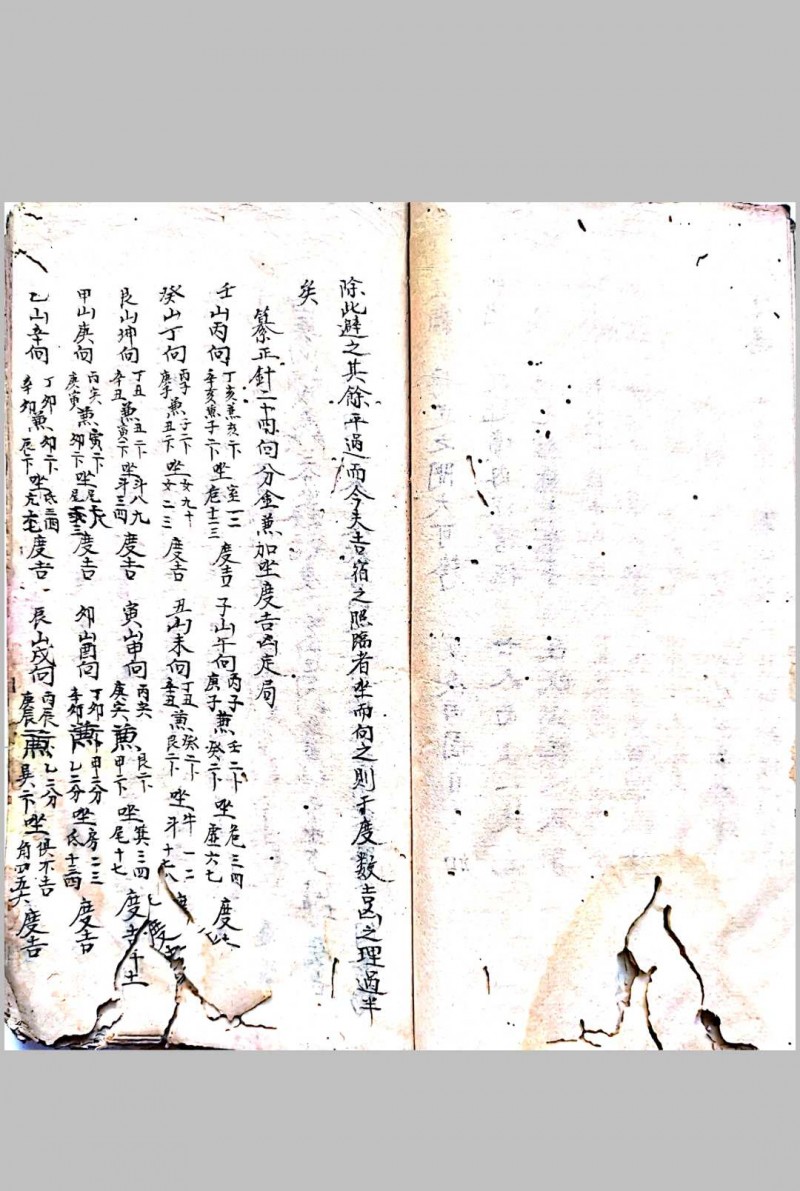 除此避之其餘平過而今夫吉宿之照臨者坐而向之則于度數吉凶之理過半
矣
纂正針二十四向分金兼加坐度吉凶定局
壬山丙向 丁亥兼亥二卞 辛亥兼子二卞 坐 室一二 危十二三 度吉 子山午向 丙子 庚子 兼 壬二卞 癸二卞 坐 危三四 虛六七 度
癸山丁向 丙子 庚子 兼 子二卞 丑二卞 坐 女九十 女二三 度吉 丑山未向 丁丑 辛丑 兼 癸二卞 艮二卞 坐 牛一二 斗十七八
艮山坤向 丁丑 辛丑 兼 丑二卞 寅二卞 坐 斗八九 斗三四 度吉 寅山申向 丙寅 庚寅 兼 艮二卞 甲二卞 坐 箕三四 尾十七 度吉
甲山庚向 丙寅 庚寅 兼 寅二卞 卯二卞 坐 尾 度吉 卯山酉向 丁卯 辛卯 兼 甲二分 乙二分 坐 房二三 氐十三四 度吉
乙山辛向 丁卯 辛卯 兼 卯二卞 辰卞 坐 氐三四 亢 度吉 辰山戌向 丙辰 庚辰 兼 乙二分 巽二卞 坐 俱不吉 角四五六 度吉